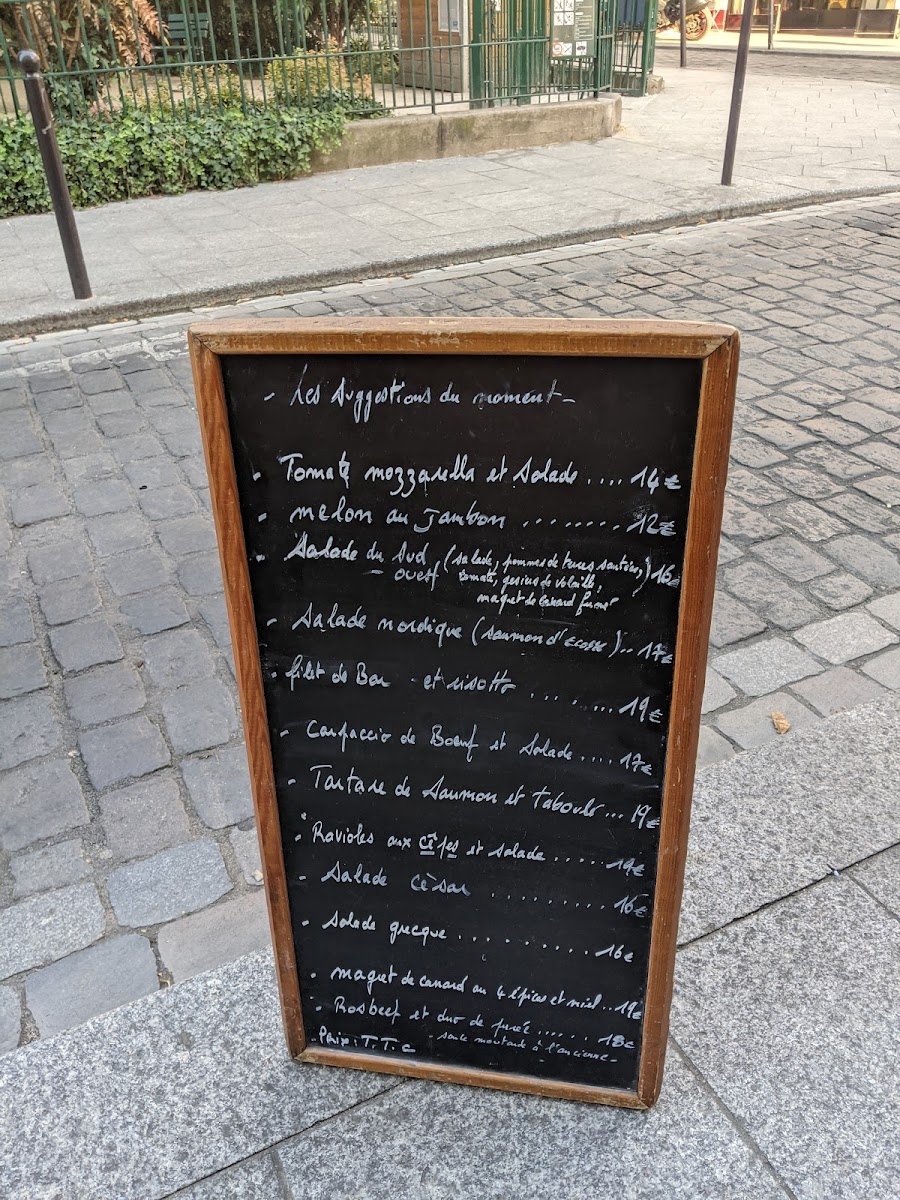 - Les suggestions du moment -
- Tomate mozzarella et Salade .... 14€
- melon au Jambon ........ 12€
- Salade du Sud (salade, pommes de terres sautées,) 16€
ouest tomate, gesiers de volaille,
magret de canard fumé
- Salade nordique (saumon d'Ecosse) .. 17€
- filet de Bar et risotto ....... 19€
- Carpaccio de Boeuf et Salade .... 17€
- Tartare de Saumon et Taboulé ... 19€
- Ravioles aux cêpes et salade ..... 19€
- Salade cèsar ......... 16€
- Salade grecque .......... 16€
- magret de canard au 4 épices et miel .. 19€
- Rosbeef et duo de purée ...... 18€
- Prix : T.T.C - sauce moutarde à l'ancienne -